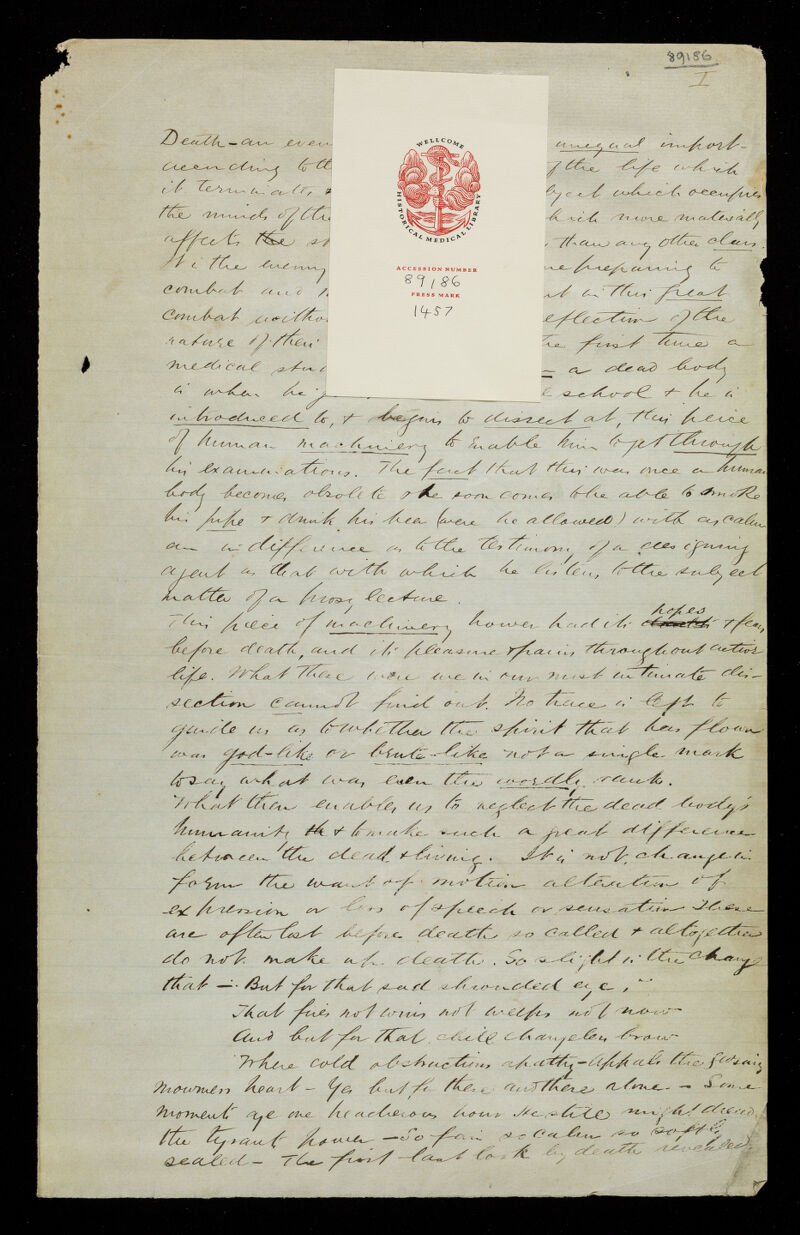 89186
I
WELLCOME
HISTORICAL MEDICAL LIBRARY
ACCESSION NUMBER
89186
PRESS MARK
1457
Death - an even unequal import-
according to th of the life which
it terminates & bject which occupies
the minds of the hich more materially
affects the st than any other class.
It is the enemy are preparing to
combat and in this great
combat witho eflection of the
nature of their the first time a
medical stud = a dead body
is when he g school & he is
introduced to, & begins to dissect at, this peice
of human machinery to enable him to get through
his examinations. The fact that this was once a human
body becomes obsolete & he soon comes to be able to smoke
his pipe & drink his beer (were he allowed) with as calm
an indifference as to the testimony of a designing
agent as that with which he listens to the subject
matter of a prosy lecture.
This piece of machinery however had its hopes & fears
before death, and its pleasures & pains throughout active
life. What these were we in our most intimate dis-
section cannot find out. No trace is left to
guide us as to whether the spirit that has flown
was god-like or brute-like not a single mark
to say what was even the wordly rank.
What then enables us to neglect the dead body's
humanity & to make such a great difference
between the dead & living. It is not change in
form the want of motion alteration of
expression or loss of speech or sensation These
are often lost before death so called & altogether
do not make up death. So slight is the change
that — But for that sad shrouded eye,"
That fires not wins not weeps not now
And but for that chill changeless brow
Where cold obstructions apathy - Appals the gazing
mourners heart - Yes but for these and these alone - Some
moments aye one treacherous hour He still might dread
the tyrants power - So fair so calm so softly
sealed - The first last look by death revealed.